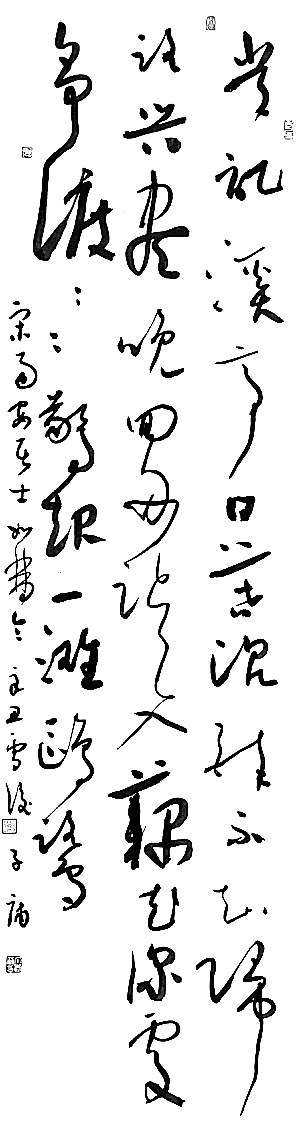 常記溪亭日暮沉醉不知歸
路兴盡晚回舟誤入藕花深處
争渡⺀⺀驚起一灘鷗鷺
宋易安居士如夢令 辛丑雪後 子庸